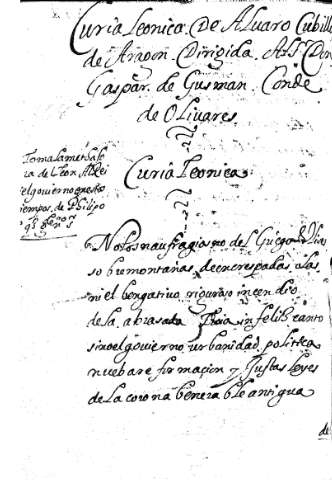 Curia Leonica. De Alvaro Cubillo
de Aragon. Dirigida. Al S. Don
Gaspar. de Gusman. Conde
de Olivares.
Toma la metafo
ra de Leon Al Rei
el govierno en estos
tiempos. de Philipo
Curia Leonica
No los naufragios no del Griego
so bre montañas, de encrespadas olas
ni el bengativo, riguroso incendio
de la, abrasada Troia infeliz canto
sino el govierno, urbanidad, politica
nueba re formacion y Justas leyes
de la corona benera ble antigua
de